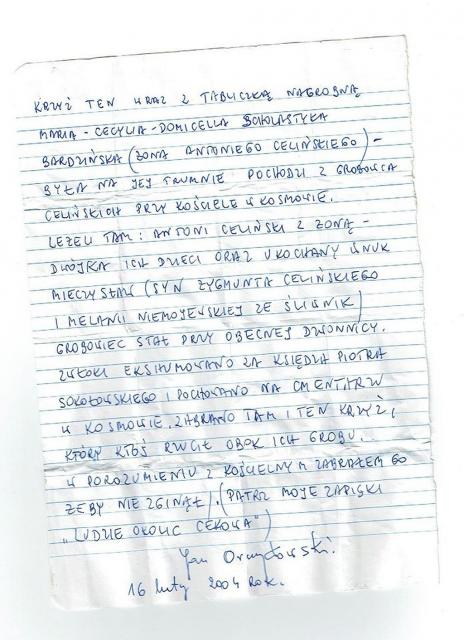 KRZYŻ TEN WRAZ Z TABLICZKĄ NAGROBNĄ
MARIA - CECYLIA - DOMICELLA SCHOLASTYKA
BARDZIŃSKA (ŻONA ANTONIEGO CELIŃSKIEGO) -
BYŁA NA JEJ TRUMNIE POCHODZI Z GROBOWCA
CELIŃSKICH PRZY KOŚCIELE W KOSMOWIE.
LEŻELI TAM: ANTONI CELIŃSKI Z ŻONĄ -
DWÓJKA ICH DZIECI ORAZ UKOCHANY WNUK
MIECZYSŁAW (SYN ZYGMUNTA CELIŃSKIEGO
I MELANII NIEMOJEWSKIEJ ZE ŚLIWNIK)
GROBOWIEC STAŁ PRZY OBECNEJ DZWONNICY.
ZWŁOKI EKSHUMOWANO ZA KSIĘDZA PIOTRA
SOKOŁOWSKIEGO I POCHOWANO NA CMENTARZU
W KOSMOWIE. ZABRANO TAM I TEN KRZYŻ,
KTÓRY KTOŚ RZUCIŁ OBOK ICH GROBU.
W POROZUMIENIU Z KOŚCIELNYM ZABRAŁEM GO
ŻEBY NIE ZGINĄŁ. (PATRZ MOJE ZAPISKI
"LUDZIE OKOLIC CEKOWA")
Jan
16 luty 2004 ROK.